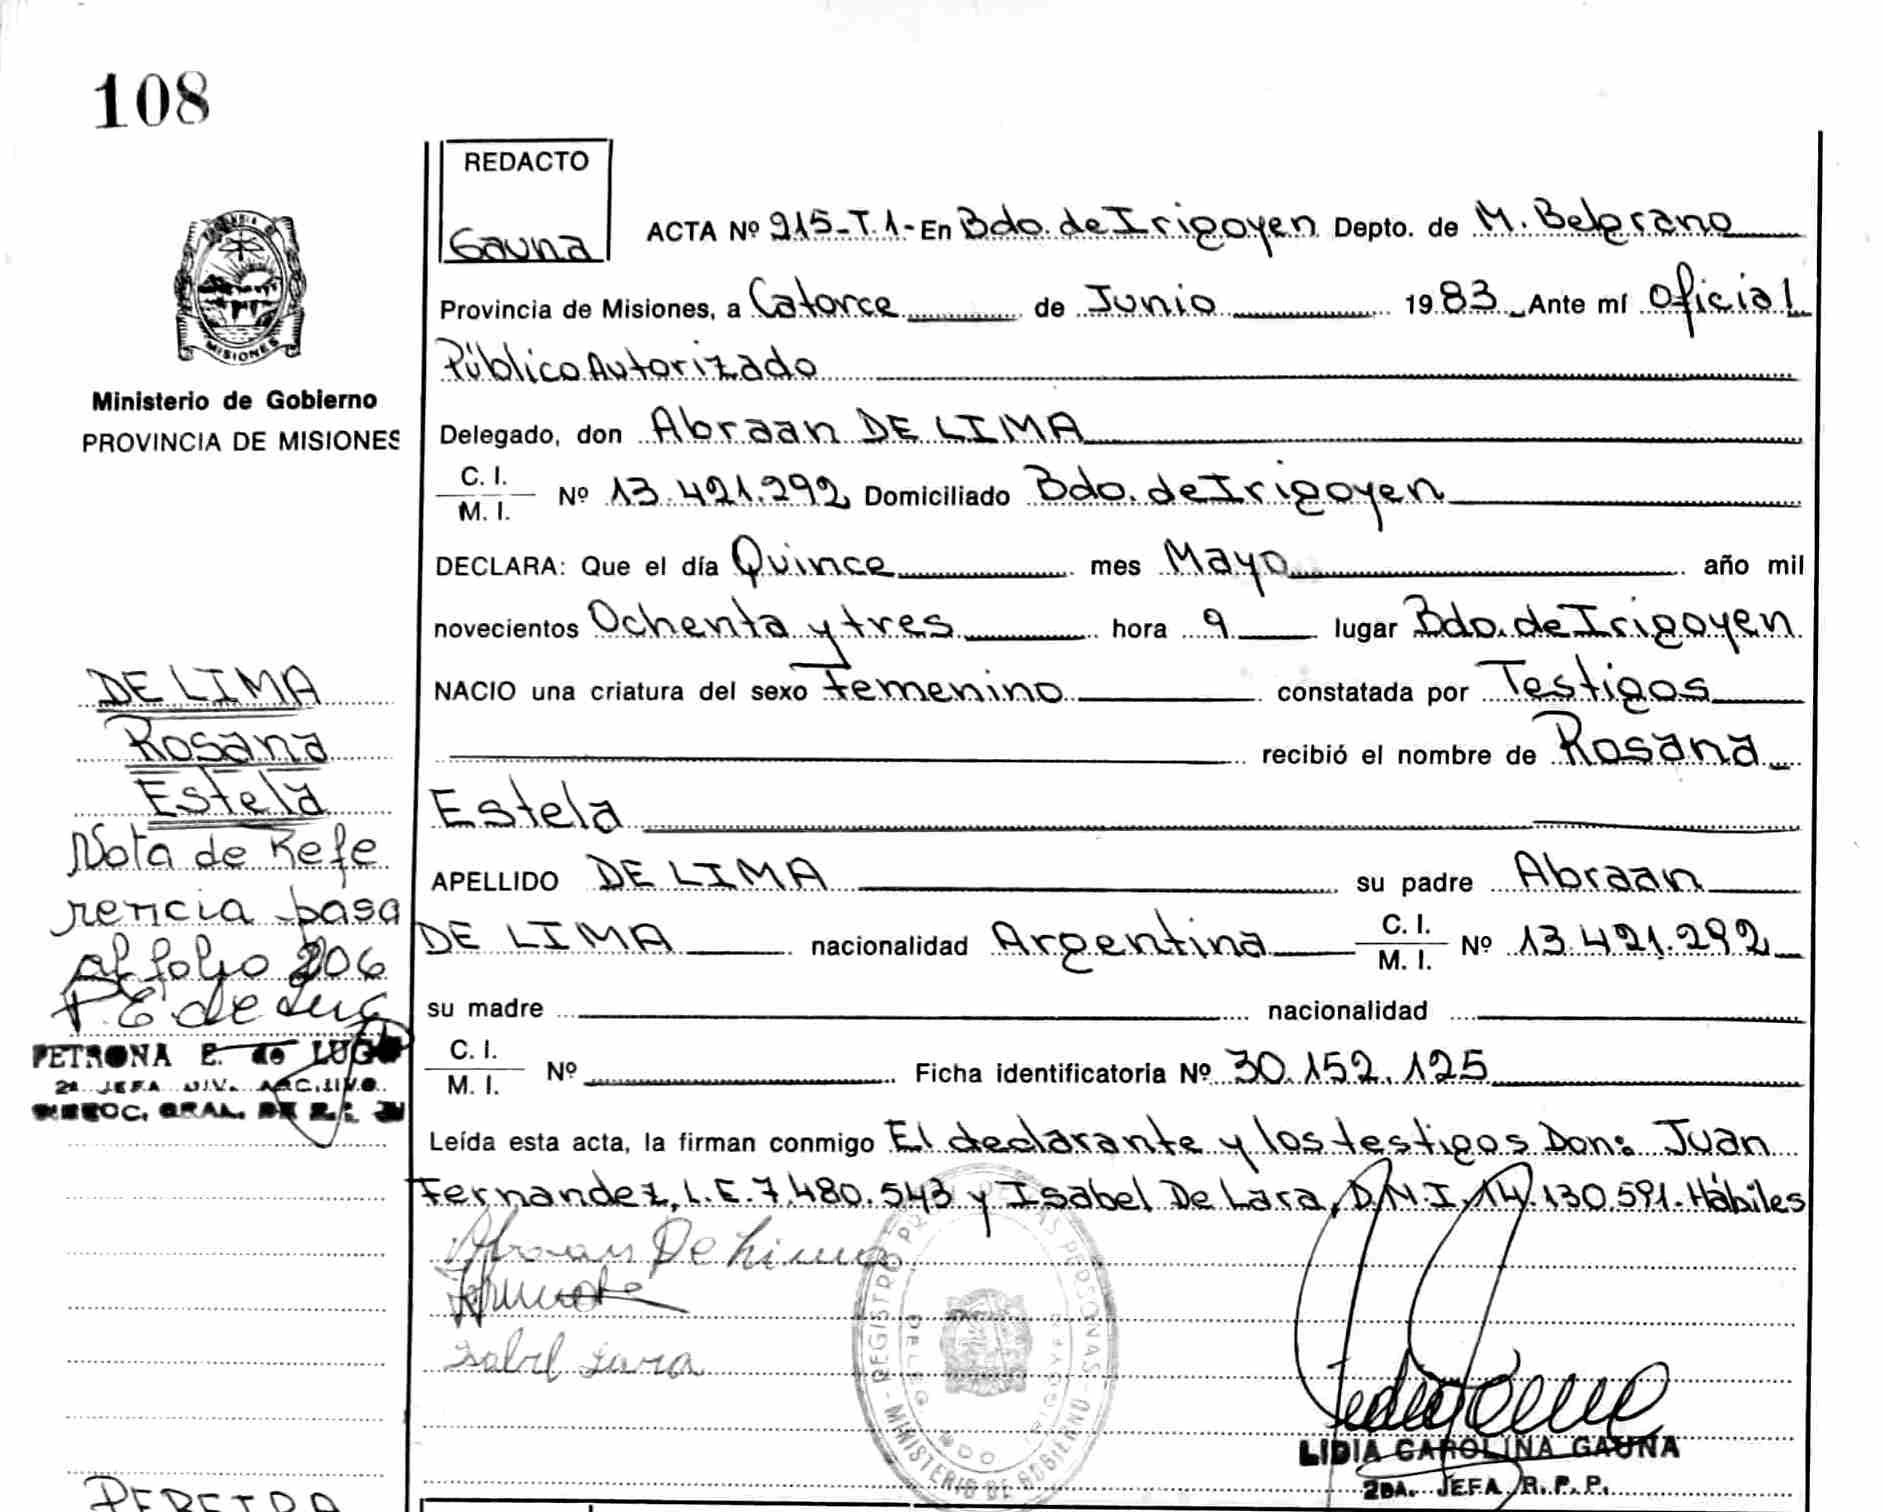 108
REDACTO
Gauna
ACTA Nº 215-T.1- En Bdo. de Irigoyen Depto. de M. Belgrano
Provincia de Misiones, a Catorce de Junio 1983 Ante mí Oficial
Público Autorizado
MISIONES
Ministerio de Gobierno
PROVINCIA DE MISIONES
Delegado, don Abraan DE LIMA
C. I.
M. I. Nº 13.421.292 Domiciliado Bdo. de Irigoyen
DECLARA: Que el día Quince mes Mayo año mil
novecientos Ochenta y tres hora 9 lugar Bdo. de Irigoyen
NACIO una criatura del sexo femenino constatada por Testigos
recibió el nombre de Rosana
Estela
APELLIDO DE LIMA su padre Abraan
DE LIMA nacionalidad Argentina C. I. M. I. Nº 13.421.292
su madre nacionalidad
C. I.
M. I. Nº Ficha identificatoria Nº 30.152.125
Leída esta acta, la firman conmigo El declarante y los testigos Don: Juan
Fernandez, L.E. 7.480.543 y Isabel De Lara, D.N.I. 14.130.591. Hábiles
DE LIMA
Rosana
Estela
Nota de Refe
rencia pasa
al folio 206
P. E de Lug
PETRONA E. de LUGO
2ª JEFA DIV. ARCHIVO
GRAL. DE
Abraan De Lima
Isabel Lara
REGISTRO PERSONAS
MINISTERIO DE GOBIERNO
BDO IRIGOYEN
LIDIA CAROLINA GAUNA
2DA. JEFA R.P.P.
PEREIRA